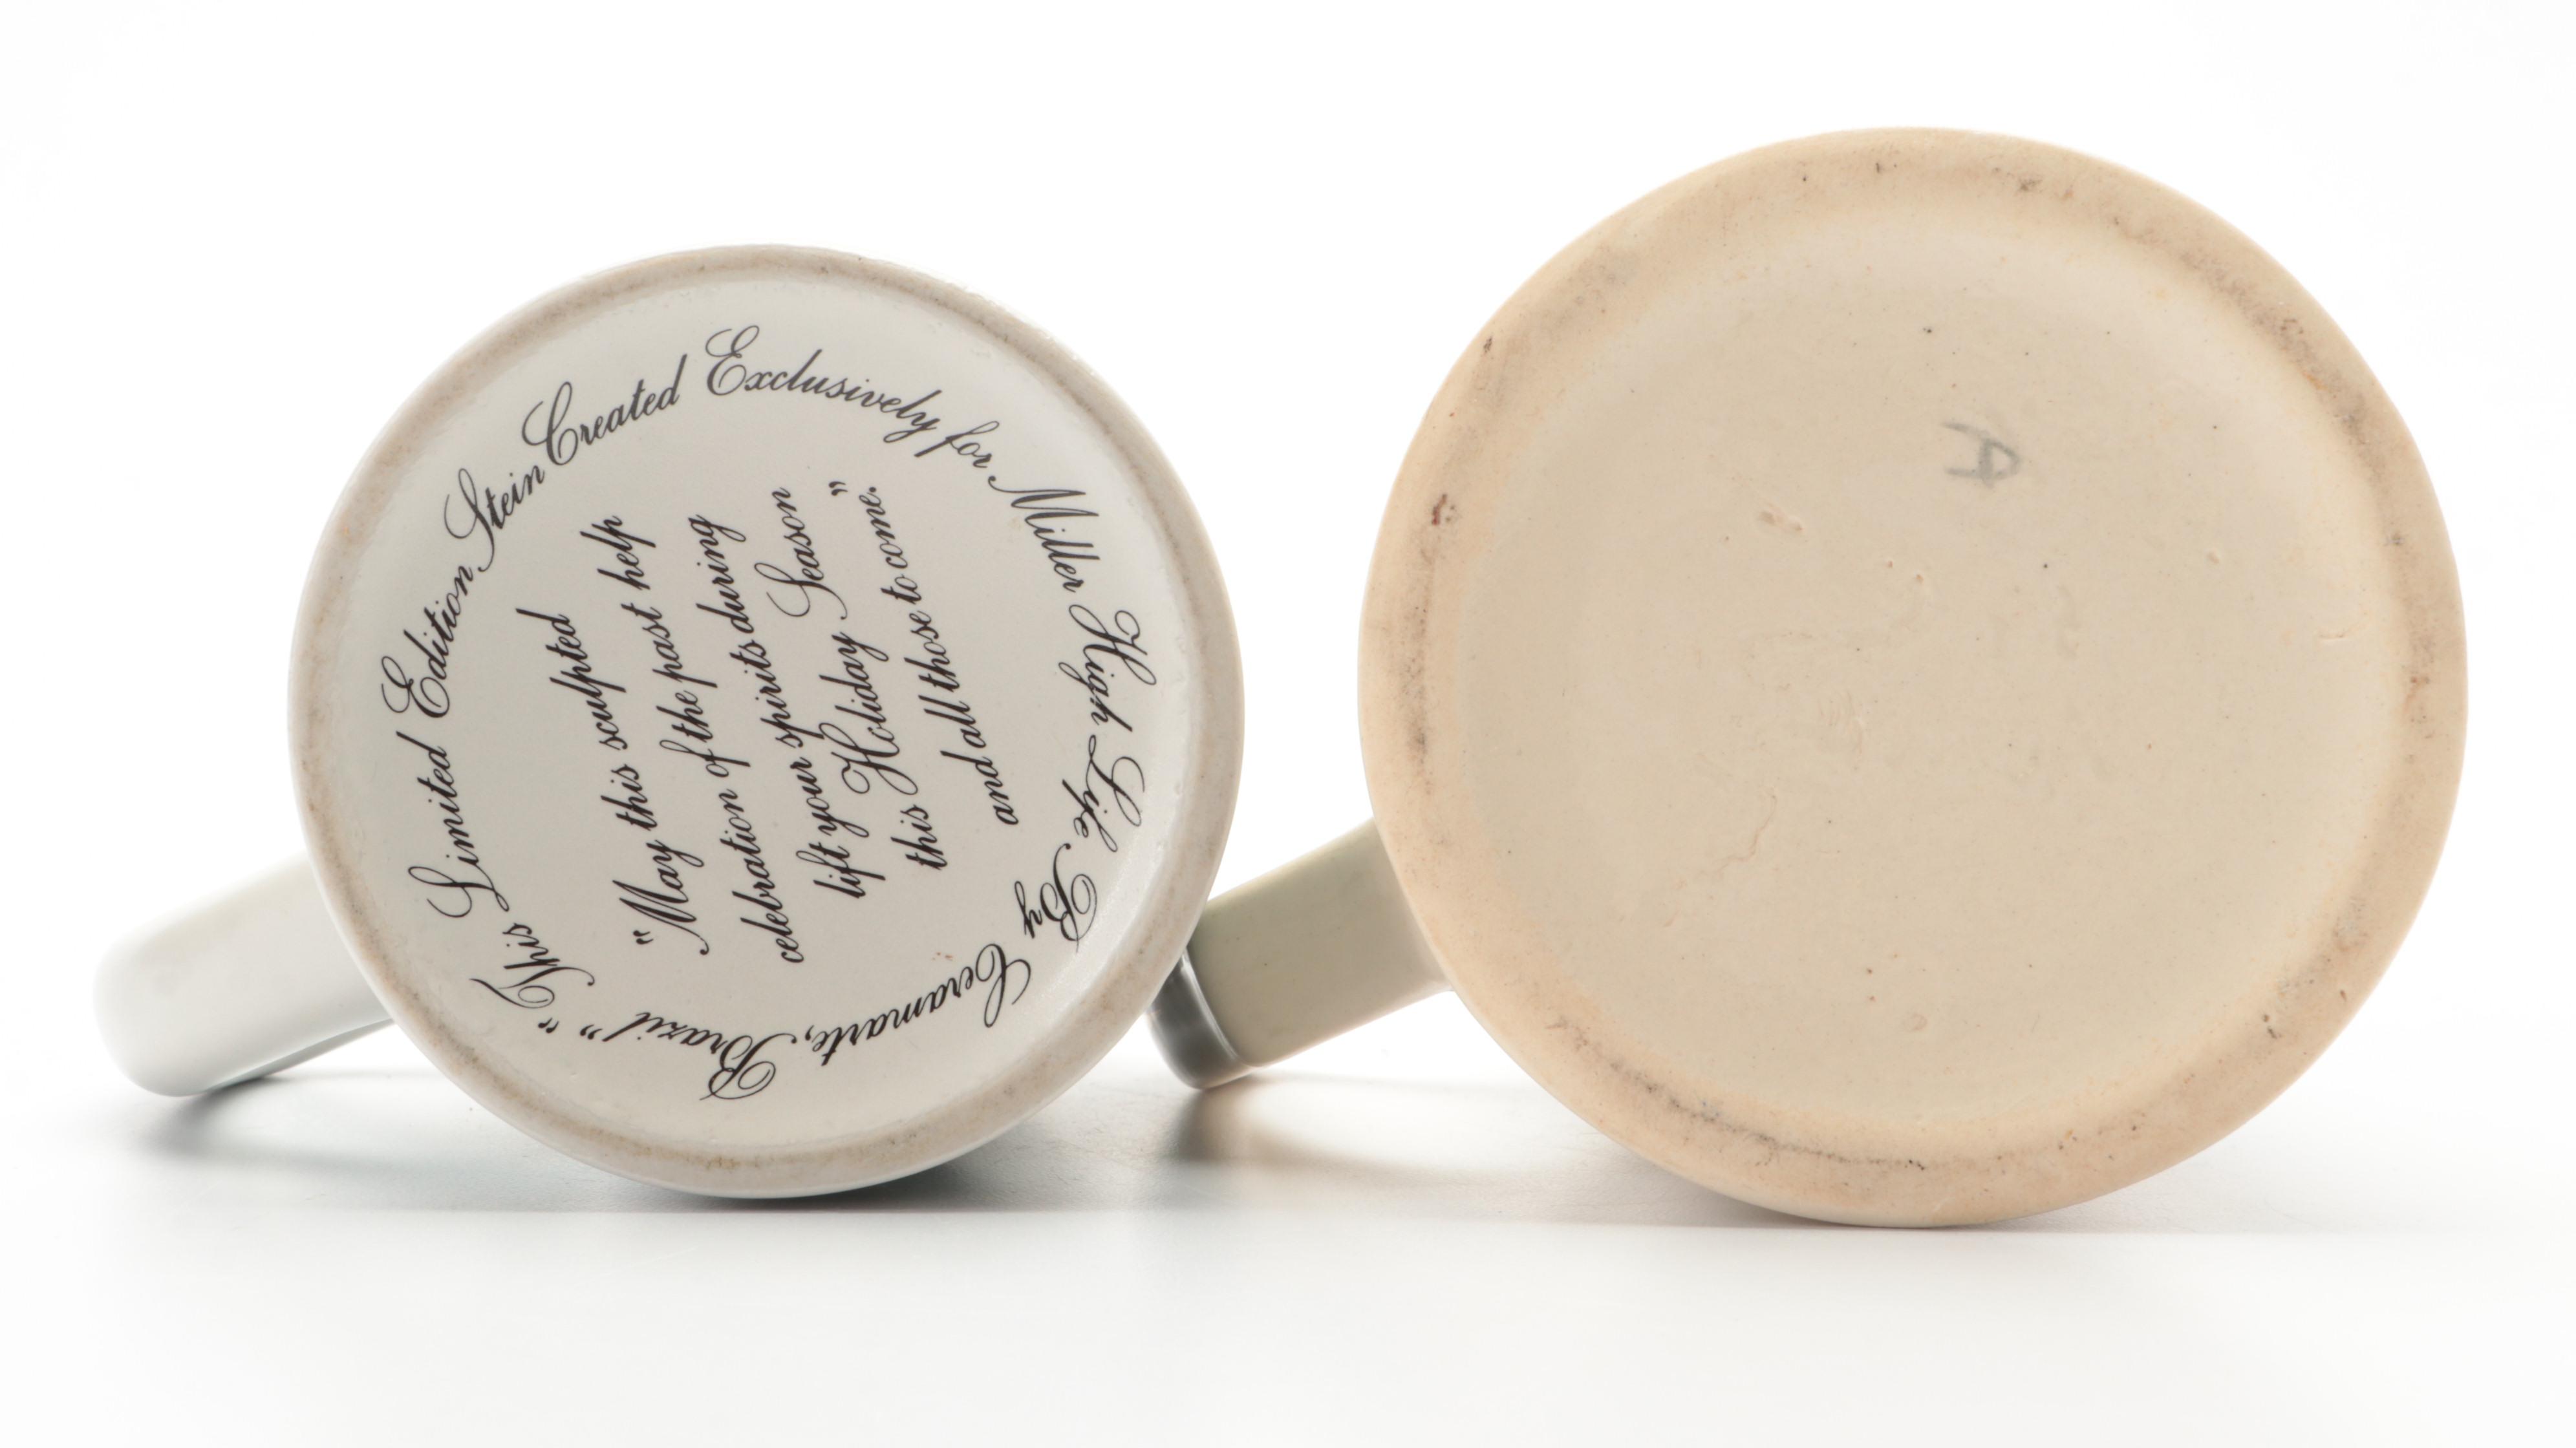 "This Limited Edition Stein Created Exclusively for Miller High Life By Ceramarte, Brazil"
"May this sculpted
celebration of the past help
lift your spirits during
this Holiday Season
and all those to come."
A